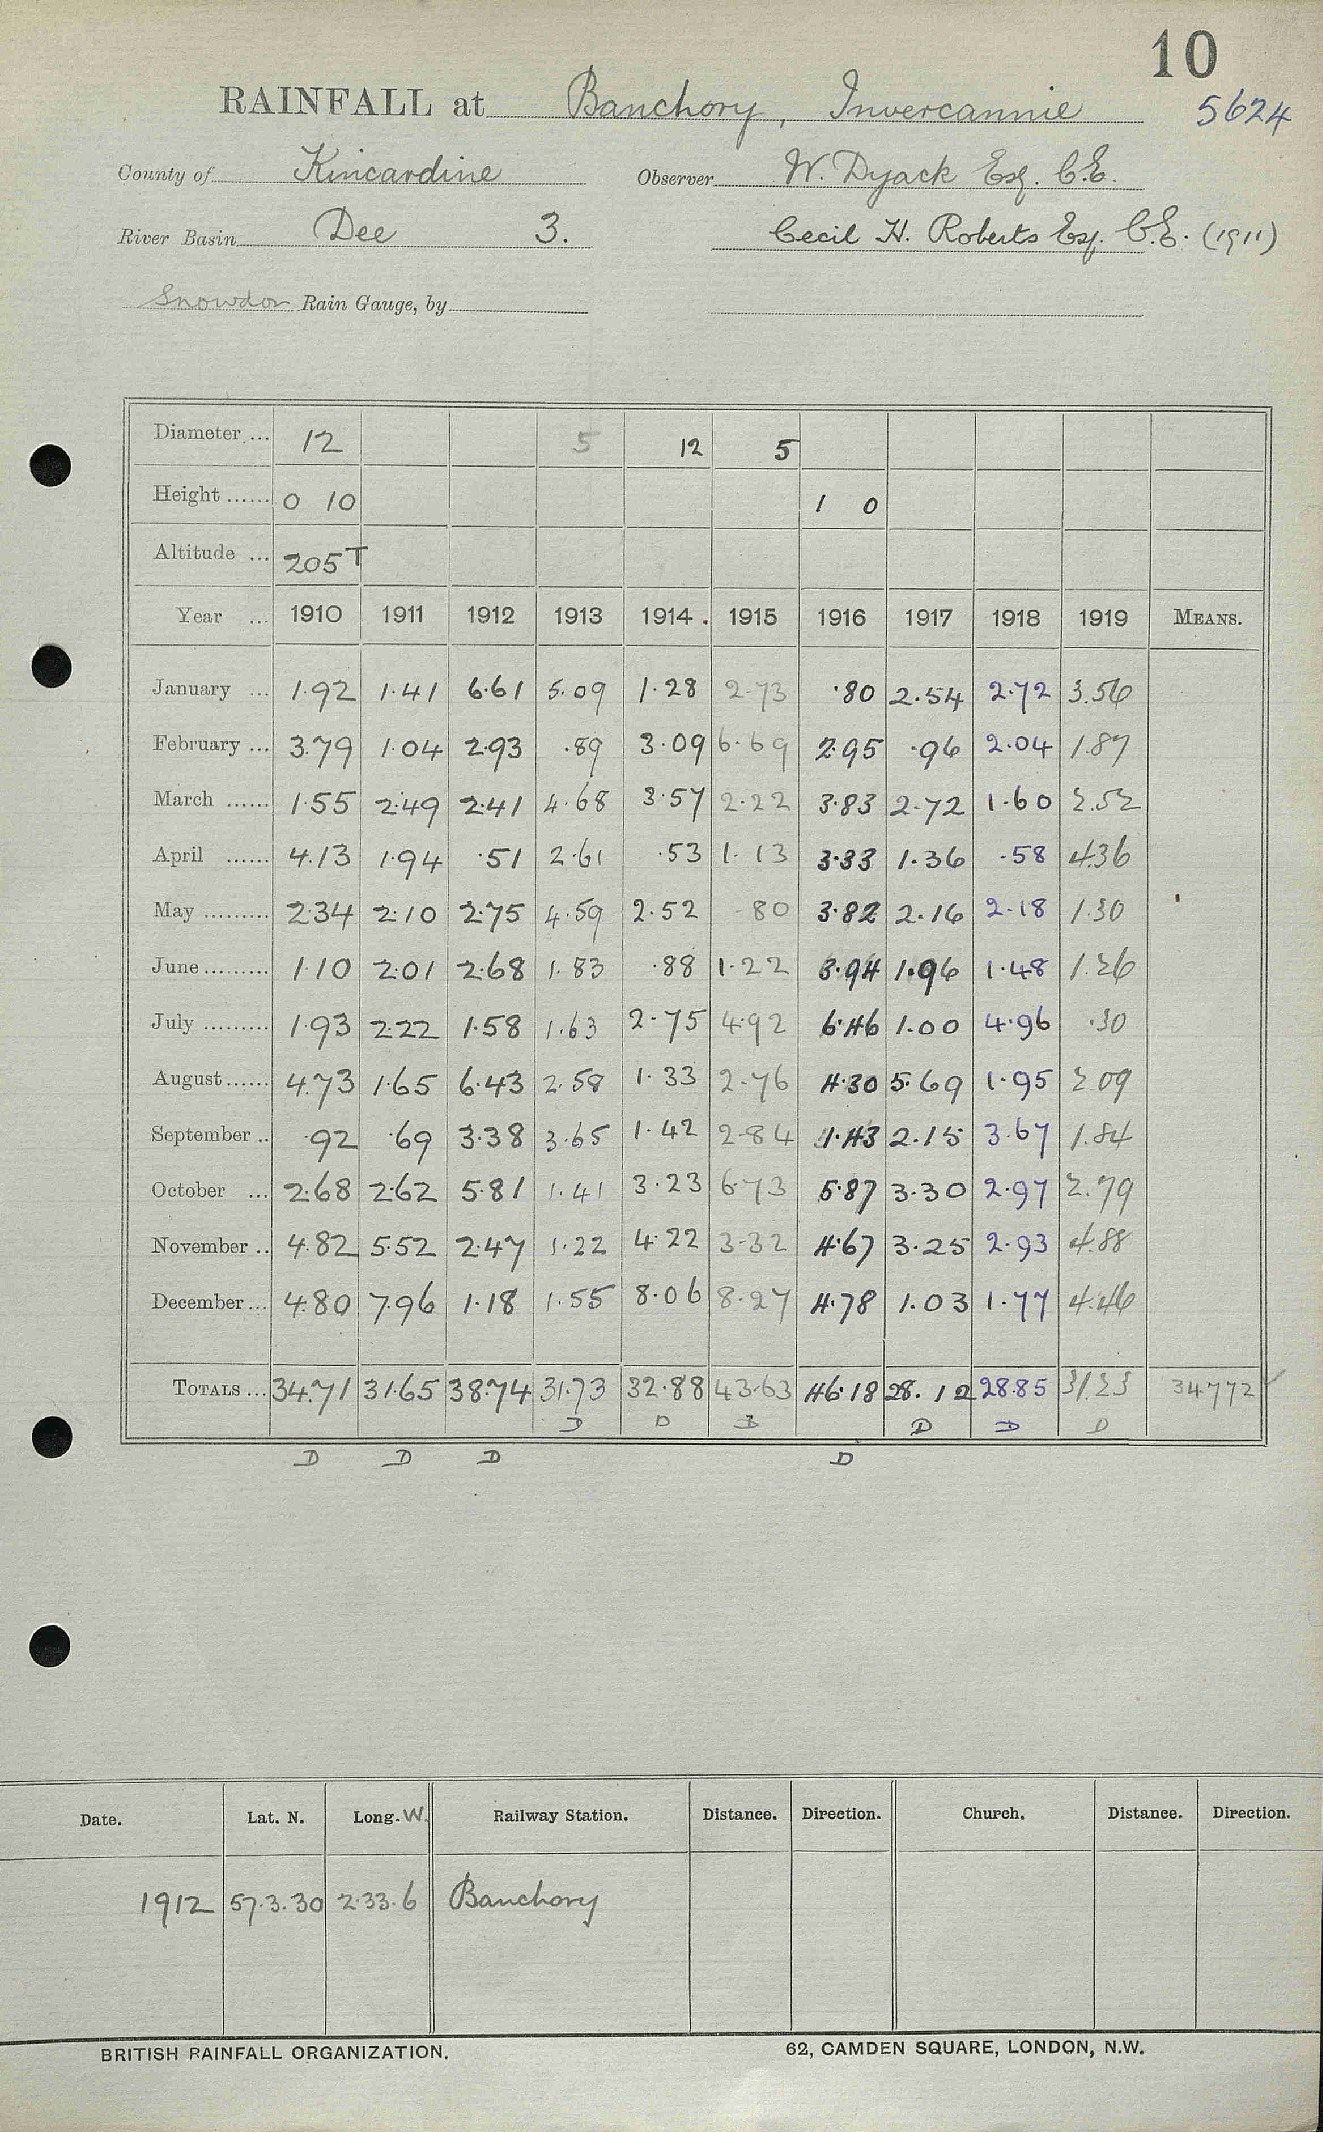 10
RAINFALL at Banchory, Invercannie 5624
County of Kincardine Observer W. Dyack Esq. C.E.
River Basin Dee 3. Cecil H. Roberts Esq. C.E. (1911)
Snowdon Rain Gauge, by
Diameter ... 12 5 12 5
Height ...... 0 10 1 0
Altitude ... 205 T
Year ... 1910 1911 1912 1913 1914. 1915 1916 1917 1918 1919 MEANS.
January ... 1.92 1.41 6.61 5.09 1.28 2.73 .80 2.54 2.72 3.56
February ... 3.79 1.04 2.93 .89 3.09 6.69 2.95 .96 2.04 1.87
March ...... 1.55 2.49 2.41 4.68 3.57 2.22 3.83 2.72 1.60 2.52
April ...... 4.13 1.94 .51 2.61 .53 1.13 3.33 1.36 .58 4.36
May ......... 2.34 2.10 2.75 4.59 2.52 .80 3.82 2.16 2.18 1.30
June ......... 1.10 2.01 2.68 1.83 .88 1.22 3.94 1.96 1.48 1.26
July ......... 1.93 2.22 1.58 1.63 2.75 4.92 6.46 1.00 4.96 .30
August ...... 4.73 1.65 6.43 2.58 1.33 2.76 4.30 5.69 1.95 2.09
September .. .92 .69 3.38 3.65 1.42 2.84 1.43 2.15 3.67 1.84
October ... 2.68 2.62 5.81 1.41 3.23 6.73 5.87 3.30 2.97 2.79
November .. 4.82 5.52 2.47 1.22 4.22 3.32 4.67 3.25 2.93 4.88
December ... 4.80 7.96 1.18 1.55 8.06 8.27 4.78 1.03 1.77 4.46
TOTALS ... 34.71 31.65 38.74 31.73 32.88 43.63 46.18 28.12 28.85 31.23 34.772 ✓
D D D D D D
D D D D
Date. Lat. N. Long. W. Railway Station. Distance. Direction. Church. Distance. Direction.
1912 57.3.30 2.33.6 Banchory
BRITISH RAINFALL ORGANIZATION. 62, CAMDEN SQUARE, LONDON, N.W.